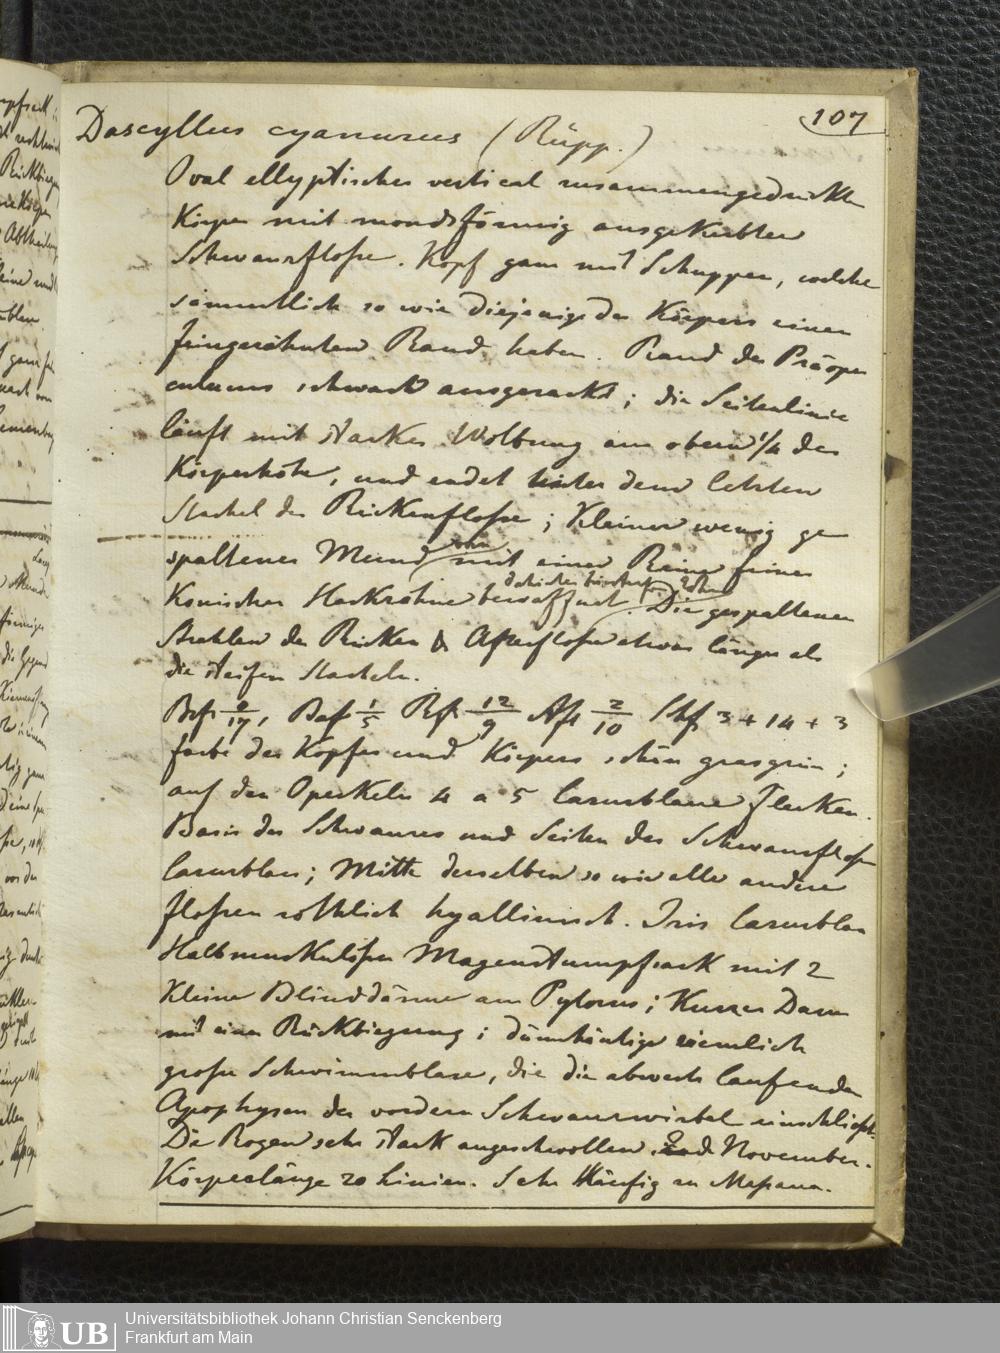 107
Dascyllus cyanurus (Rüpp.)
Oval ellyptischer vertical zusammengedrückter
Körper mit mondsförmig ausgekerbter
Schwanzflosse. Kopf ganz mit Schuppen, welche
sämmtlich so wie diejenige des Körpers einen
feingezähnten Rand haben. Rand des Präoper
culums schwach ausgezackt; die Seitenlinie
läuft mit starker Wölbung am obern 1/4 der
Körperhöhe, und endet hinter dem letzten
Stachel der Rückenflosse; Kleiner wenig ge
spaltener Mund mit einer Reihe feiner
Konischer Hackzähne bewaffnet. Die gespaltenen
Strahlen der Rücken & Afterflosse etwas länger als
die steifen Stacheln.
Brf. 2/17, Baf. 1/5 Rf. 12/9 Af. 2/10 Shf. 3 + 14 + 3
farbe des Kopfes und Körpers schön grasgrün;
auf den Operkeln 4 a 5 lazurblaue Flecken.
Basis des Schwanzes und Seiten der Schwanzflosse
lazurblau; Mitte derselben so wie alle andere
flossen röthlich hyallinisch. Iris lazurblau
Halbmuskulöser Magenstumpfsack mit 2
Kleine Blinddärme am Pylorus; Kurzer Darm
mit einer Rückbiegung; dünnhäutige ziemlich
grosse Schwimmblase, die die abwerts laufenden
Apophysen der vordern Schwanzwirbel einschliesst.
Die Rogen sehr stark angeschwollen, End November.
Körperlänge 20 Linien. Sehr Häufig zu Massaua.
Universitätsbibliothek Johann Christian Senckenberg
Frankfurt am Main
UB